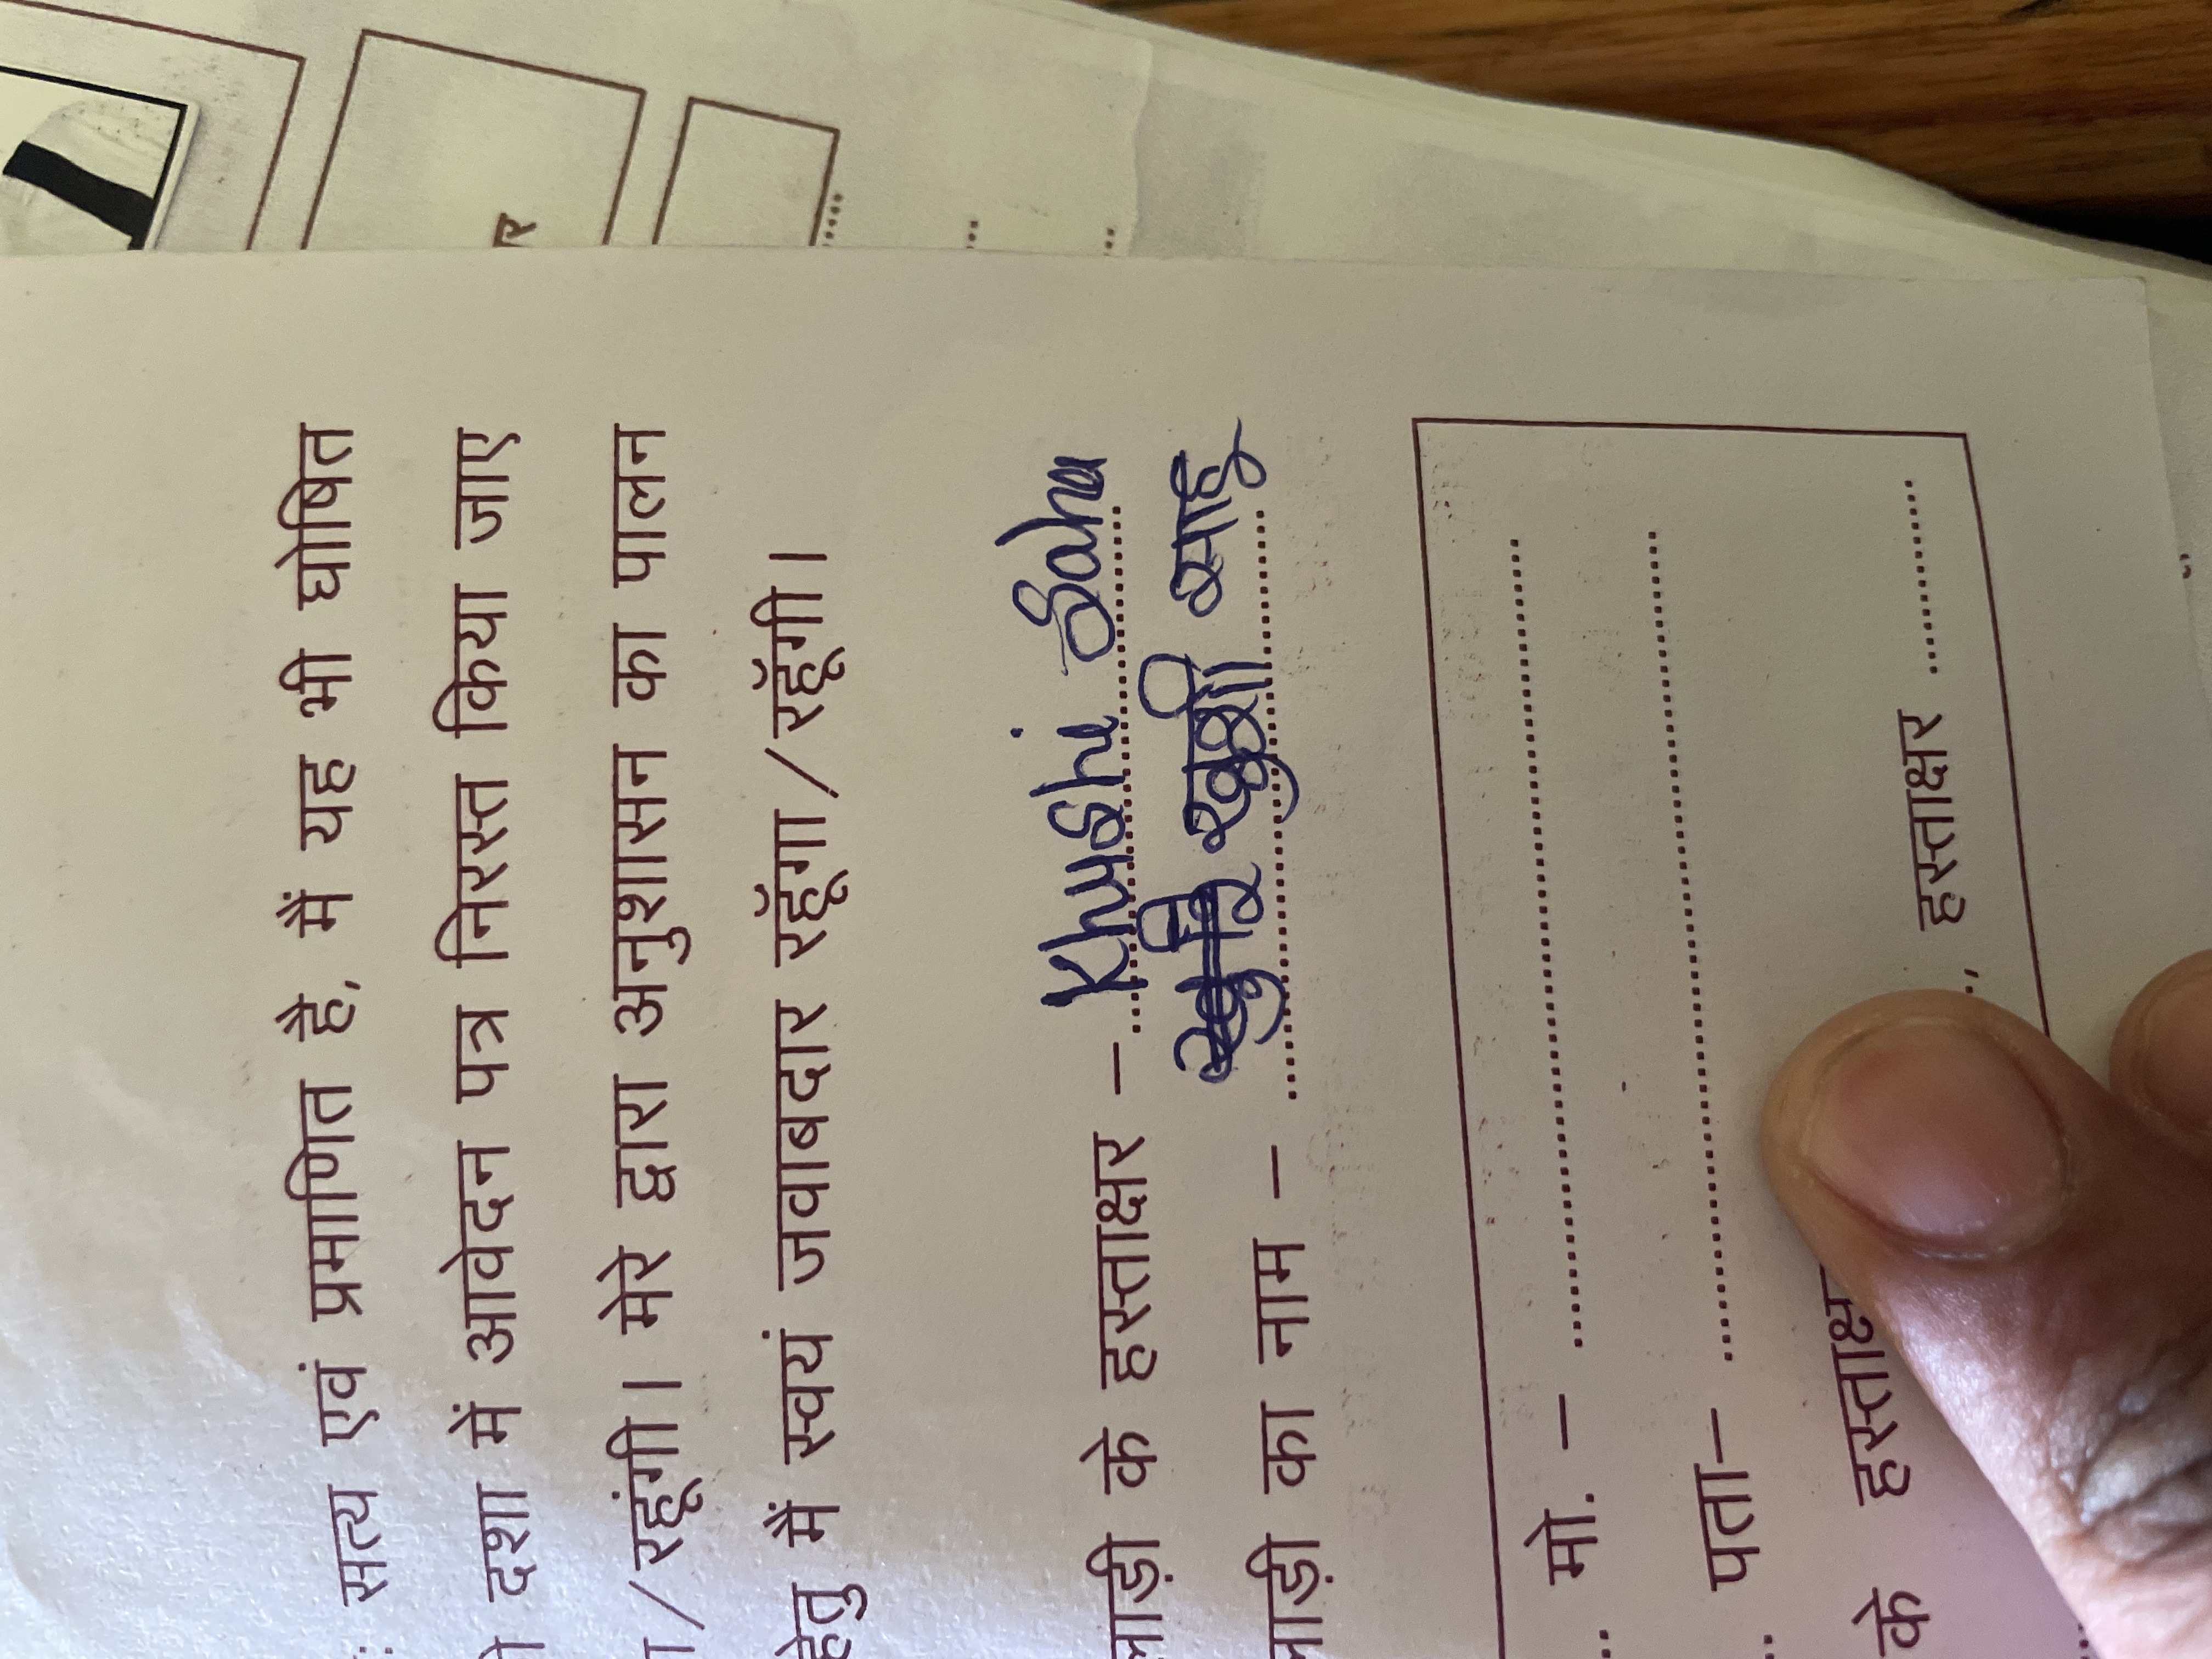 सत्य एवं प्रमाणित है, मैं यह भी घोषित
दशा में आवेदन पत्र निरस्त किया जाए
/रहूंगी। मेरे द्वारा अनुशासन का पालन
हेतु मैं स्वयं जवाबदार रहूँगा/रहूँगी।
के हस्ताक्षर – Khushi Sahu
का नाम – खुशी साहु
मो. –
पता–
के हस्ताक्षर, हस्ताक्षर